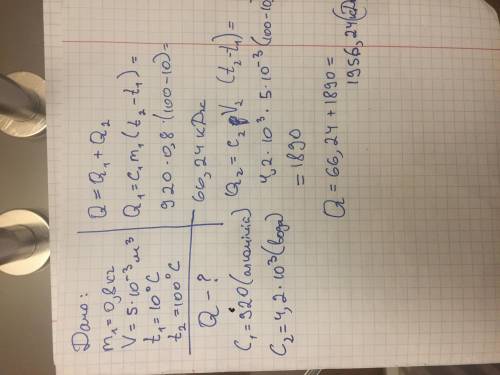 Дано:
m₁=0,8кг
V=5·10⁻³м³
t₁=10°C
t₂=100°C
Q-?
C₁=920(алюмінія)
C₂=4,2·10³(вода)
Q=Q₁+Q₂
Q₁=C₁m₁(t₂-t₁)=
920·0,8·(100-10)=
66,24кДж
Q₂=C₂ρV₂ (t₂-t₁)=
4,2·10³·5·10⁻³(100-10)
=1890
Q=66,24+1890=
1956,24(кДж